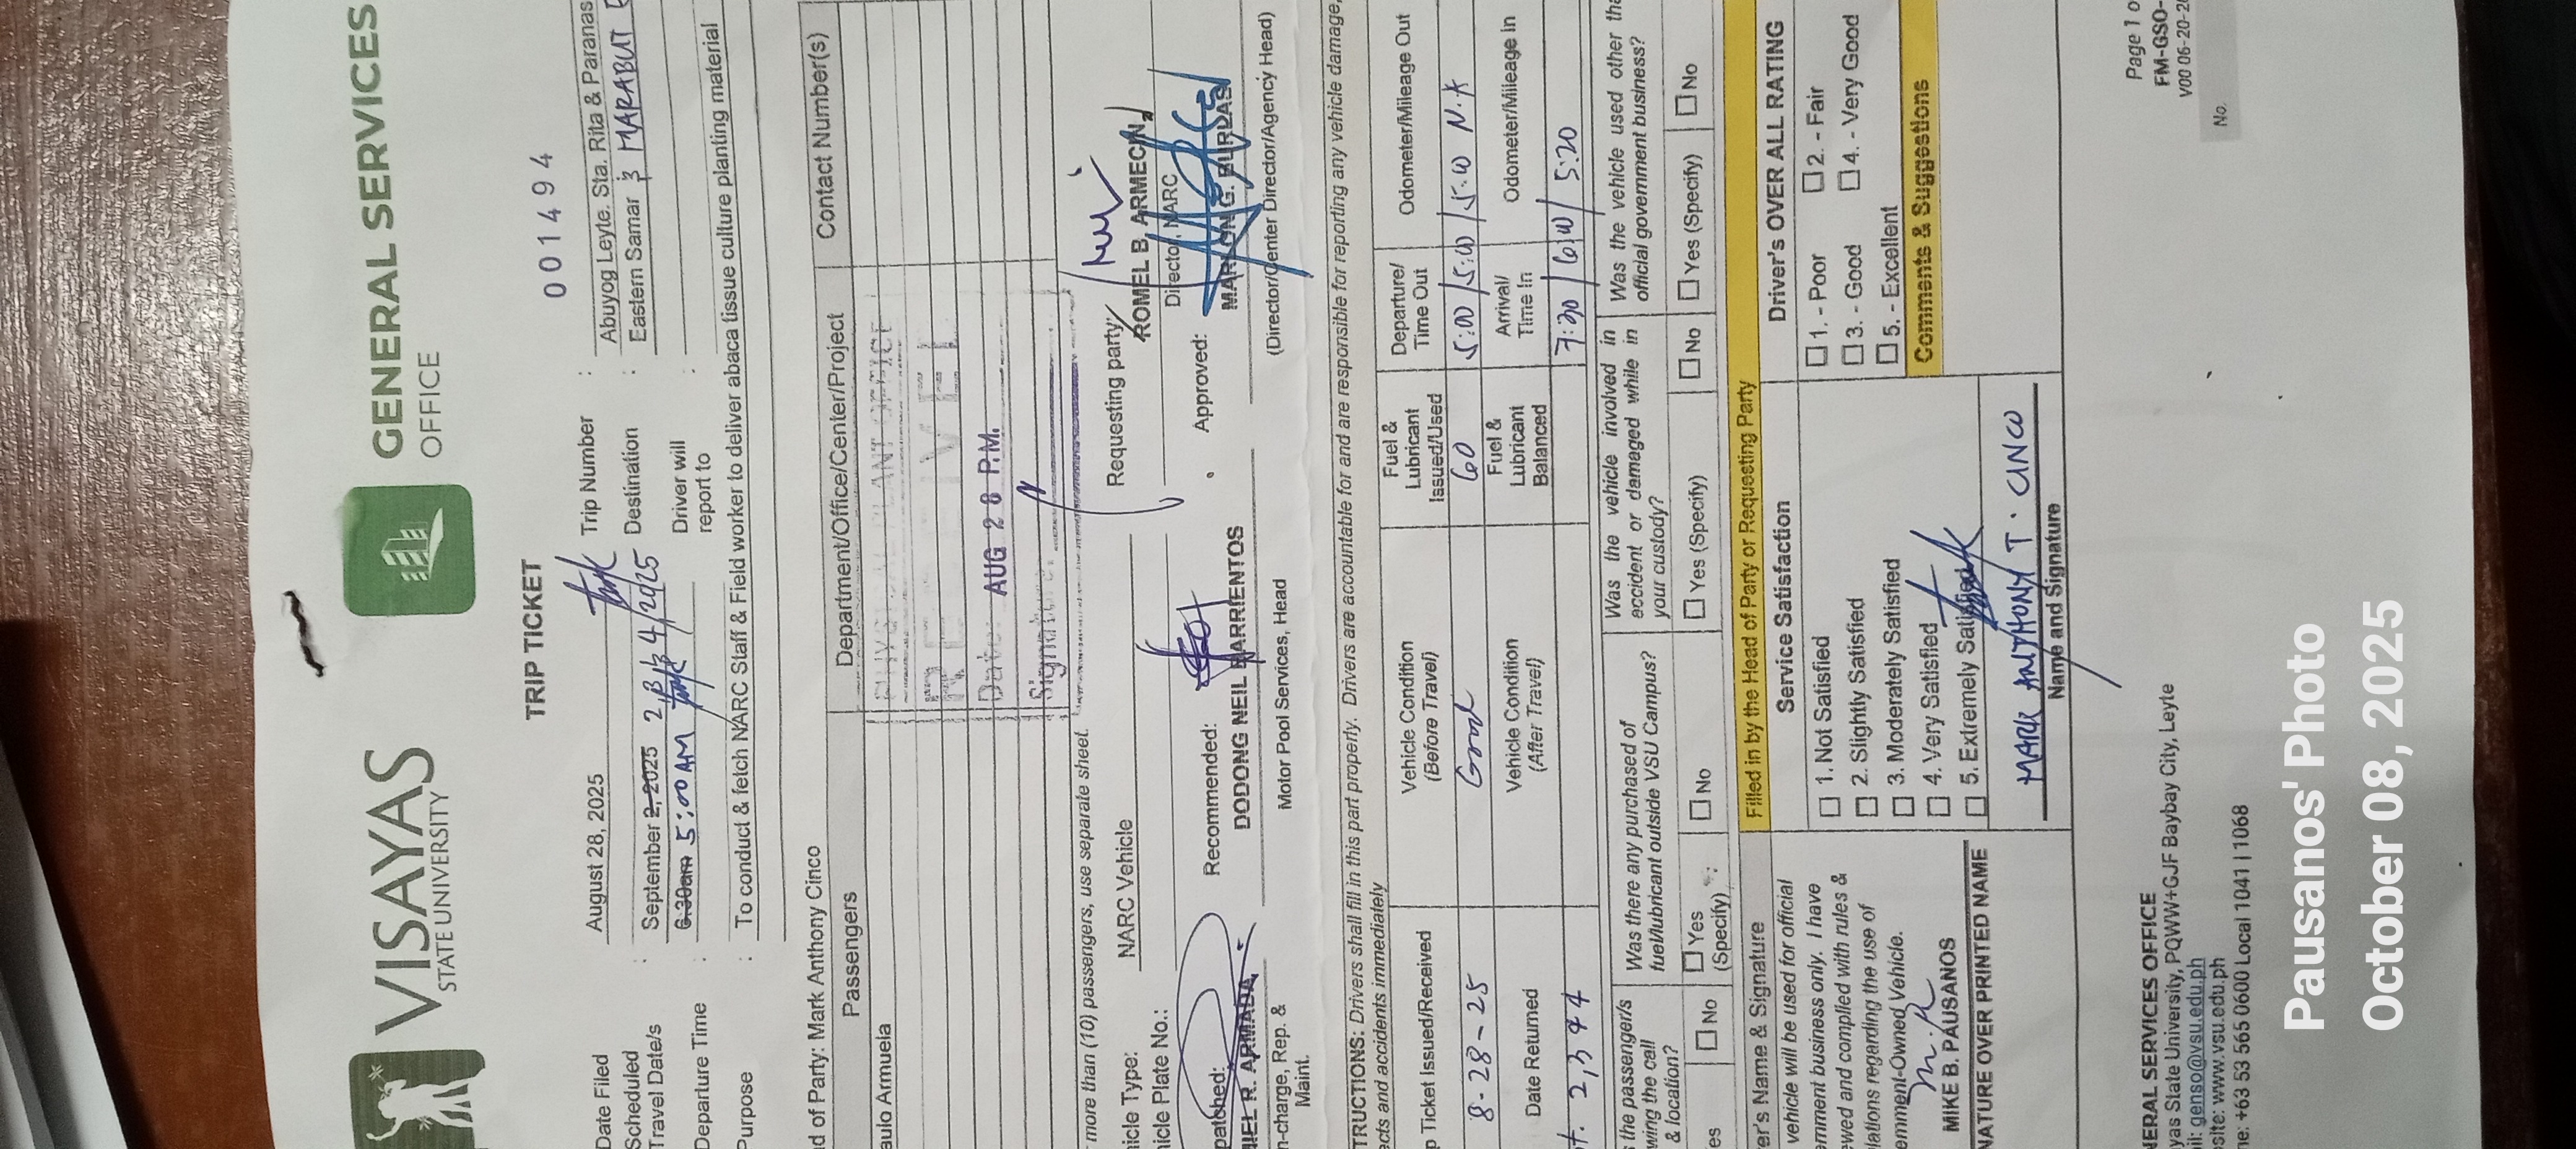 VISAYAS
STATE UNIVERSITY
GENERAL SERVICES
OFFICE
TRIP TICKET
001494
Date Filed : August 28, 2025
Trip Number :
Scheduled Travel Date/s : September 2, 2025 2, 3 & 4/2025
Destination : Abuyog Leyte. Sta. Rita & Paranas
Eastern Samar & MARABUT
Departure Time : 6:30am 5:00 AM
Driver will report to :
Purpose : To conduct & fetch NARC Staff & Field worker to deliver abaca tissue culture planting material
ad of Party: Mark Anthony Cinco
Passengers
Department/Office/Center/Project
Contact Number(s)
aulo Armuela
Date: AUG 28 P.M.
Signature:
more than (10) passengers, use separate sheet.
hicle Type: NARC Vehicle
hicle Plate No.:
Requesting party:
ROMEL B. ARMECIN
Director, NARC
patched:
Recommended:
Approved:
NIEL R. ARMADA
DODONG NEIL BARRIENTOS
MARLON G. BURLAS
n-charge, Rep. & Maint.
Motor Pool Services, Head
(Director/Center Director/Agency Head)
TRUCTIONS: Drivers shall fill in this part properly. Drivers are accountable for and are responsible for reporting any vehicle damage,
acts and accidents immediately
p Ticket Issued/Received
Vehicle Condition (Before Travel)
Fuel & Lubricant Issued/Used
Departure/ Time Out
Odometer/Mileage Out
8-28-25
Good
60
5:00 /5:00 /5:00 N.K
Date Returned
Vehicle Condition (After Travel)
Fuel & Lubricant Balanced
Arrival/ Time In
Odometer/Mileage In
t. 2,3 & 4
7:30 / 6:00 / 5:20
the passenger/s
wing the call
& location?
Was there any purchased of fuel/lubricant outside VSU Campus?
Was the vehicle involved in accident or damaged while in your custody?
Was the vehicle used other tha
official government business?
es
No
Yes (Specify)
No
Yes (Specify)
No
Yes (Specify)
No
er's Name & Signature
Filled in by the Head of Party or Requesting Party
vehicle will be used for official
ernment business only. I have
ewed and complied with rules &
lations regarding the use of
ernment-Owned Vehicle.
MIKE B. PAUSANOS
NATURE OVER PRINTED NAME
Service Satisfaction
1. Not Satisfied
2. Slightly Satisfied
3. Moderately Satisfied
4. Very Satisfied
5. Extremely Satisfied
MARK ANTHONY T. CINCO
Name and Signature
Driver's OVER ALL RATING
1. - Poor
2. - Fair
3. - Good
4. - Very Good
5. - Excellent
Comments & Suggestions
NERAL SERVICES OFFICE
yas State University, PQWW+GJF Baybay City, Leyte
il: genso@vsu.edu.ph
site: www.vsu.edu.ph
ne: +63 53 565 0600 Local 1041 | 1068
Page 1 o
FM-GSO-
V00 06-20-20
No.
Pausanos' Photo
October 08, 2025